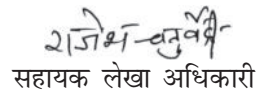 राजेश चतुर्वेदी
सहायक लेखा अधिकारी